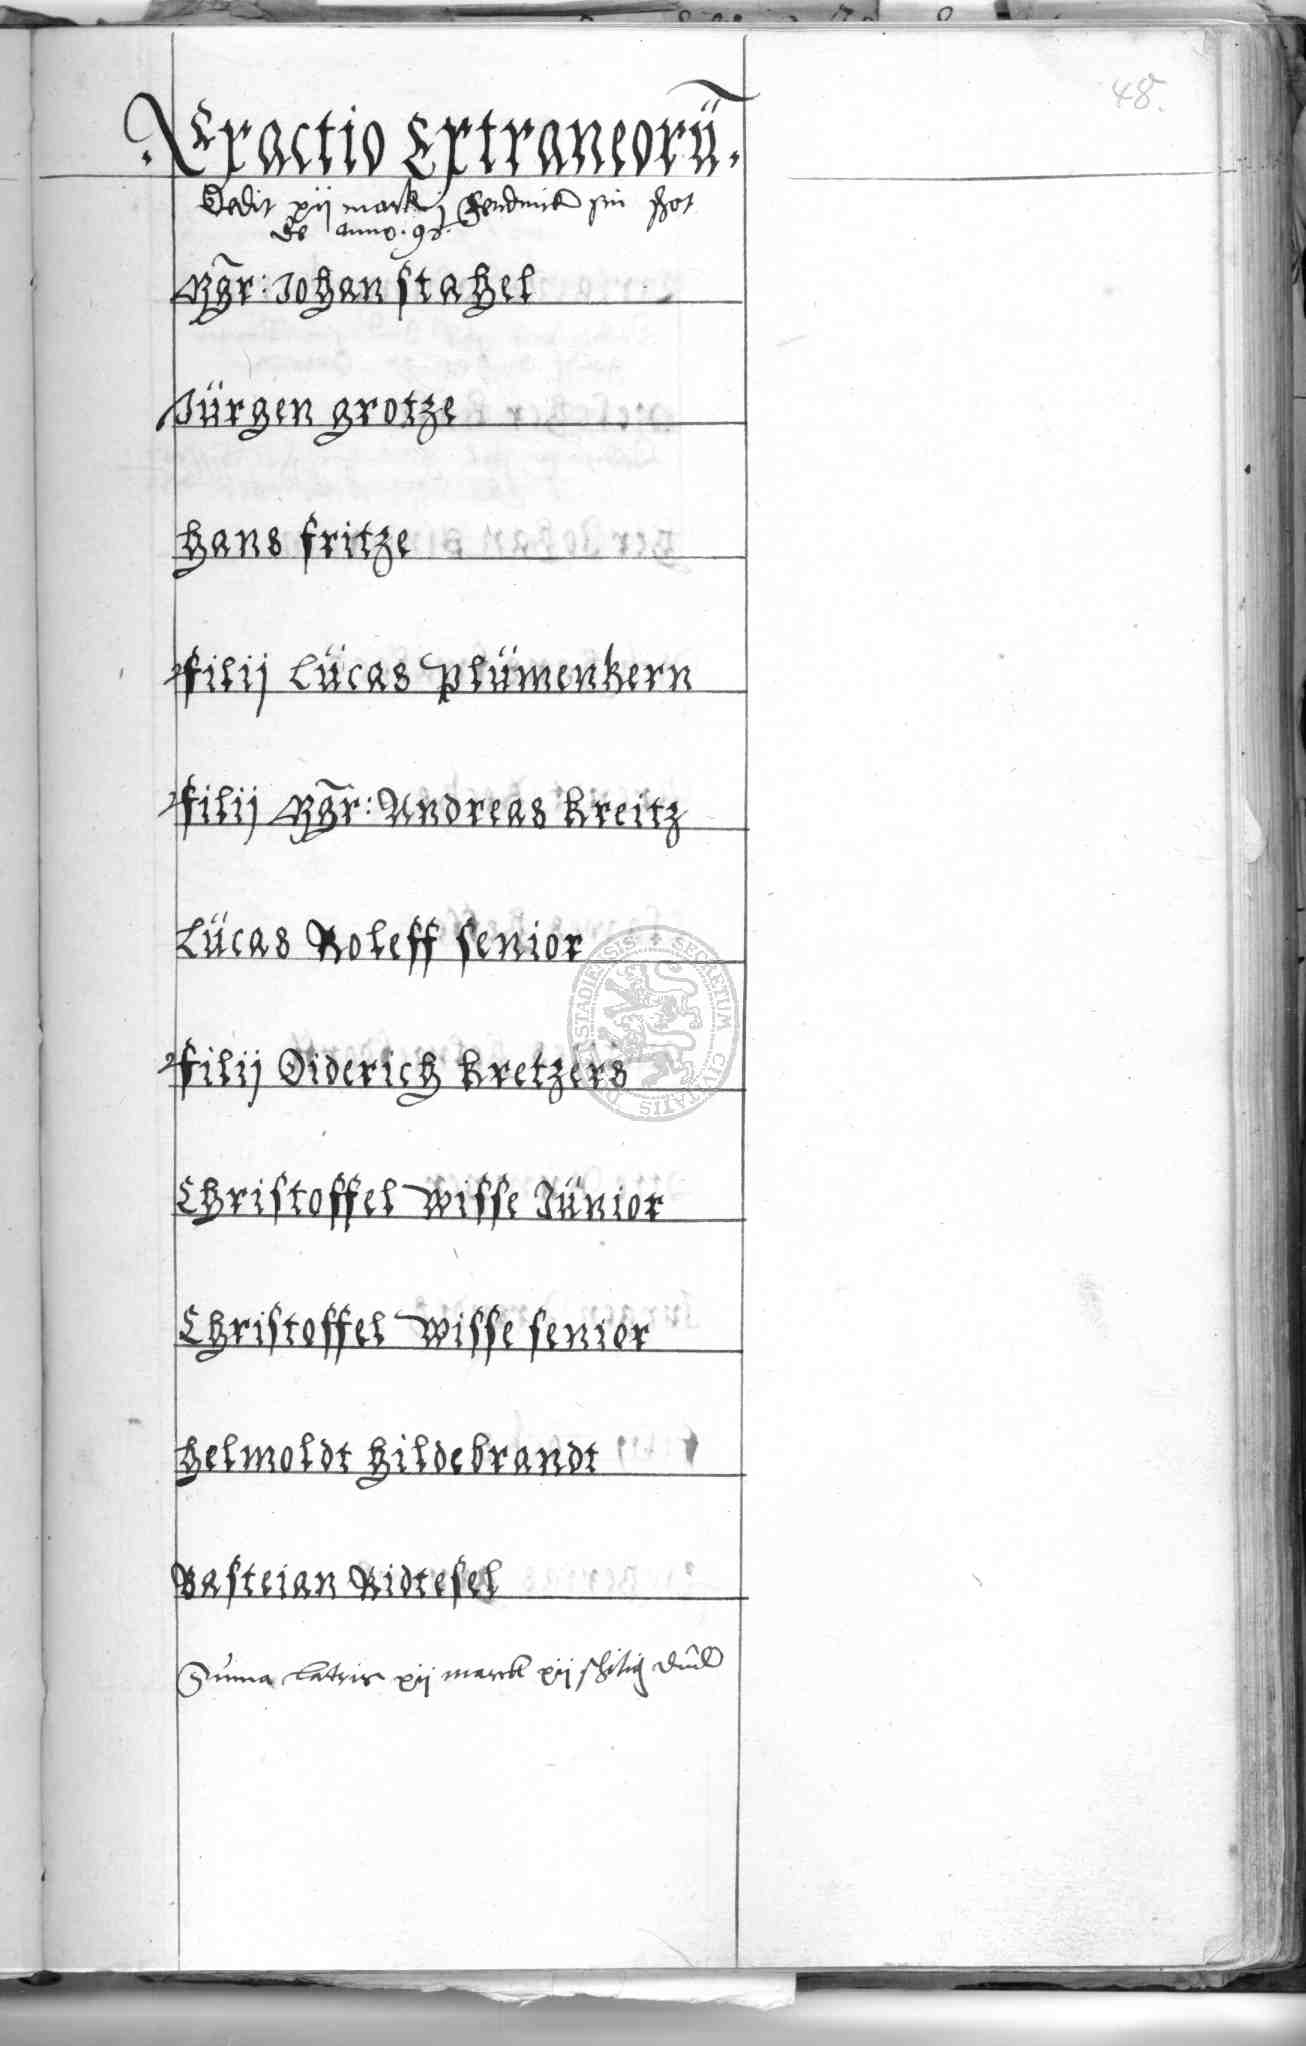 48.
Exactio Extraneorū.
Dedit xij marck j
de anno . 98.
Mgr̄: Johan stahel
Jürgen grotze
hans fritze
filij Lücas plümenkern
filij Mgr̄: Andreas kreitz
Lücas Roleff senior
filij Diderich kretzers
Christoffel wisse Jünior
Christoffel wisse senior
helmoldt hildebrandt
Basteian Ridtesel
Suma lateris xij marck xij schilig
SECRETUM CIVITATIS STADIENSIS